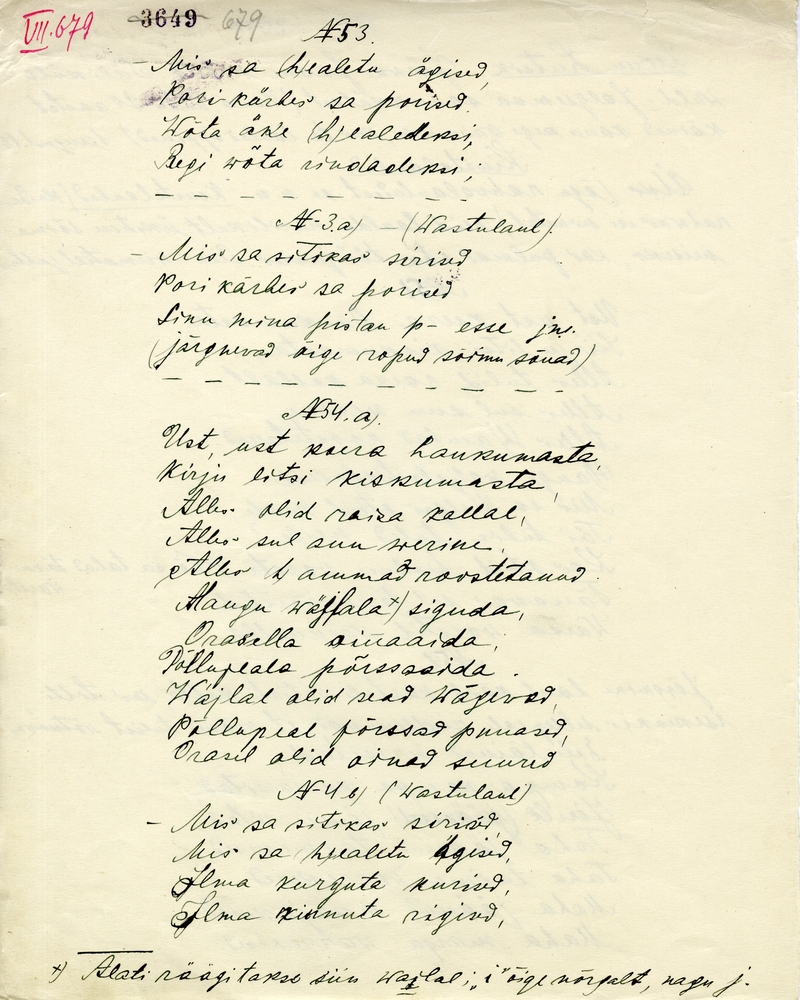 VII.679 3649 679
N53.
– Mis sa (h)ealetu ägised,
Pori kärbes sa porised.
Wõta äke (h)ealedeksi,
Regi wõta rindadeksi;
N-3.a) – (Wastulaul).
– Mis sa sitikas sirised
Pori kärbes sa porised
Sinu mina pistan p– esse jne.
(järgnevad õige ropud sõimu sõnad)
N54.a).
Ust, ust koera haukumasta,
Kirju litsi kiskumasta,
Alles olid raisa kallal,
Alles sul suu werine,
Alles hammad roostetanud.
Mangu wäjlala +) siguda,
Orasella oinaaida,
Põllupeala põrssaida.
Wäjlal olid sead wägevad,
Põllupeal põrssad punased,
Orasel olid oinad suured
N-4 b) (Wastulaul)
– Mis sa sitikas sirised,
Mis sa h)ealetu ägised,
Ilma kurguta kurised,
Ilma rinnuta rigised,
+) Alati räägitakse siin wäjlal; "i" õige nõrgalt, nagu j.